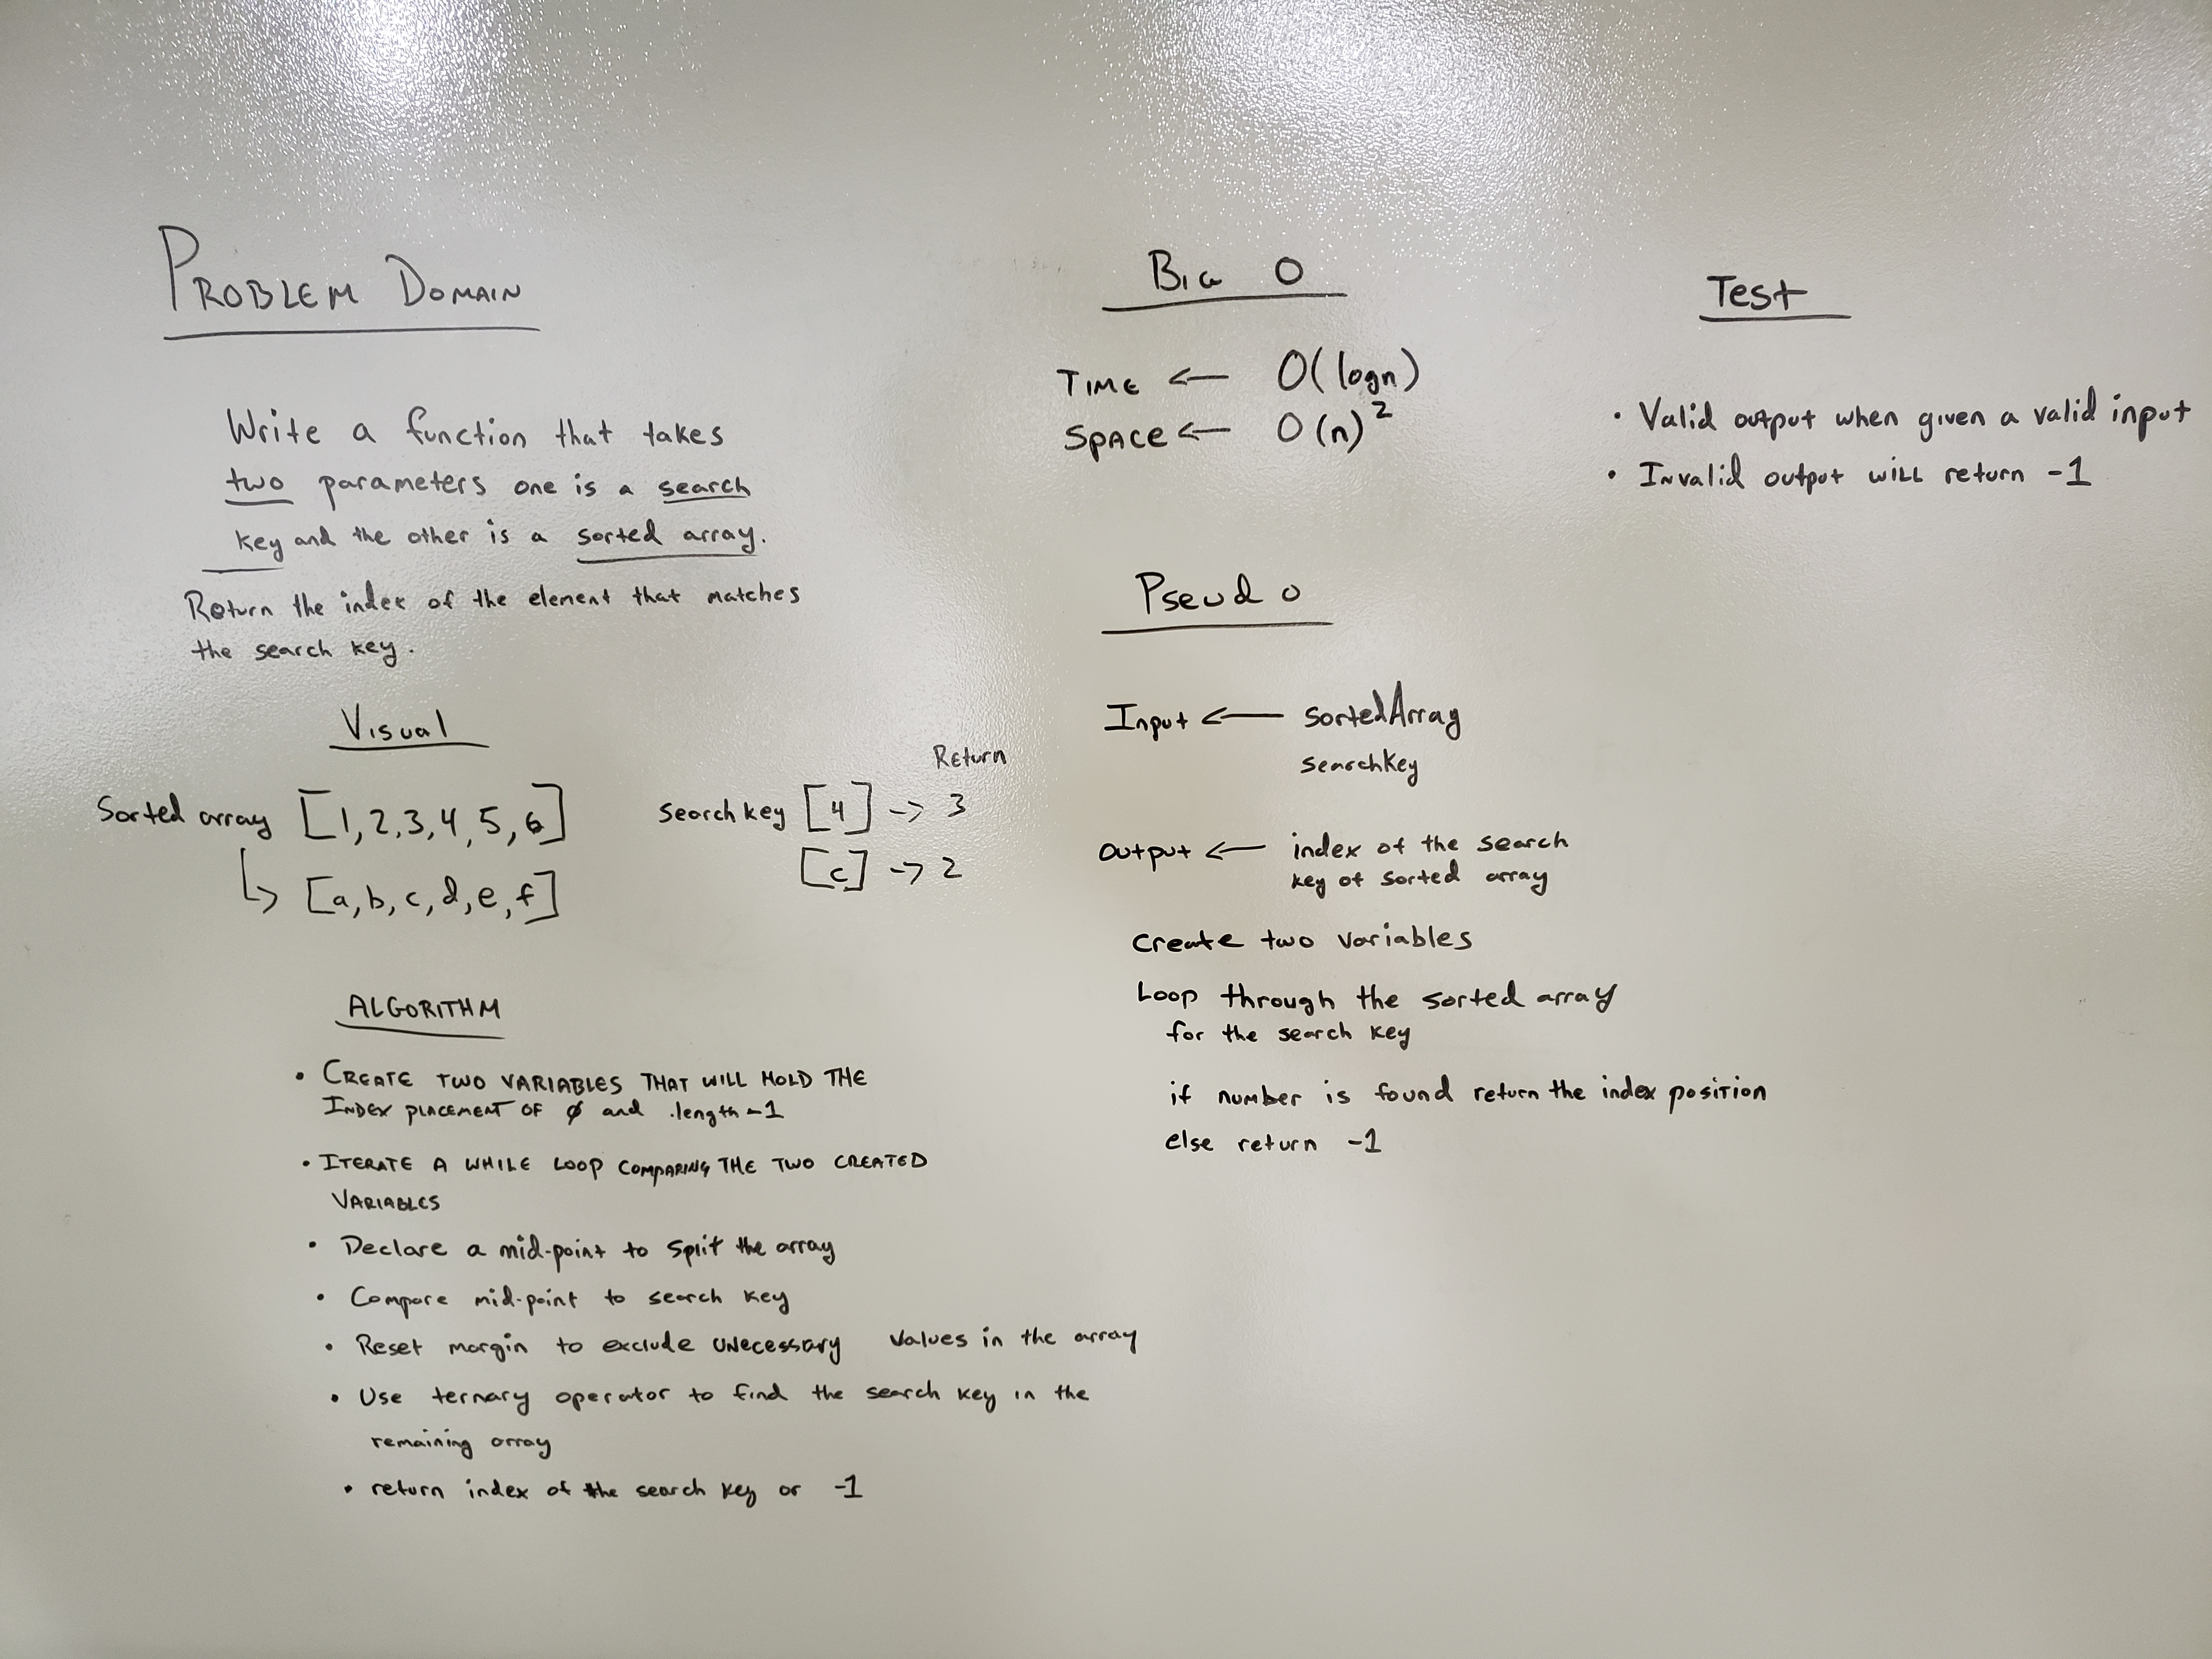 PROBLEM DOMAIN
Write a function that takes
two parameters one is a search
key and the other is a sorted array.
Return the index of the element that matches
the search key.
Visual
Sorted array [1,2,3,4,5,6]
[a,b,c,d,e,f]
Return
Search key [4] -> 3
[c] -> 2
ALGORITHM
• CREATE TWO VARIABLES THAT WILL HOLD THE
INDEX PLACEMENT OF Ø and .length-1
• ITERATE A WHILE LOOP COMPARING THE TWO CREATED
VARIABLES
• Declare a mid-point to split the array
• Compare mid-point to search key
• Reset margin to exclude unecessary values in the array
• Use ternary operator to find the search key in the
remaining array
• return index of the search key or -1
BIG O
TIME ← O(logn)
SPACE ← O(n)²
Pseudo
Input ← sortedArray
searchKey
Output ← index of the search
key of sorted array
Create two variables
Loop through the sorted array
for the search key
if number is found return the index position
else return -1
Test
• Valid output when given a valid input
• Invalid output will return -1